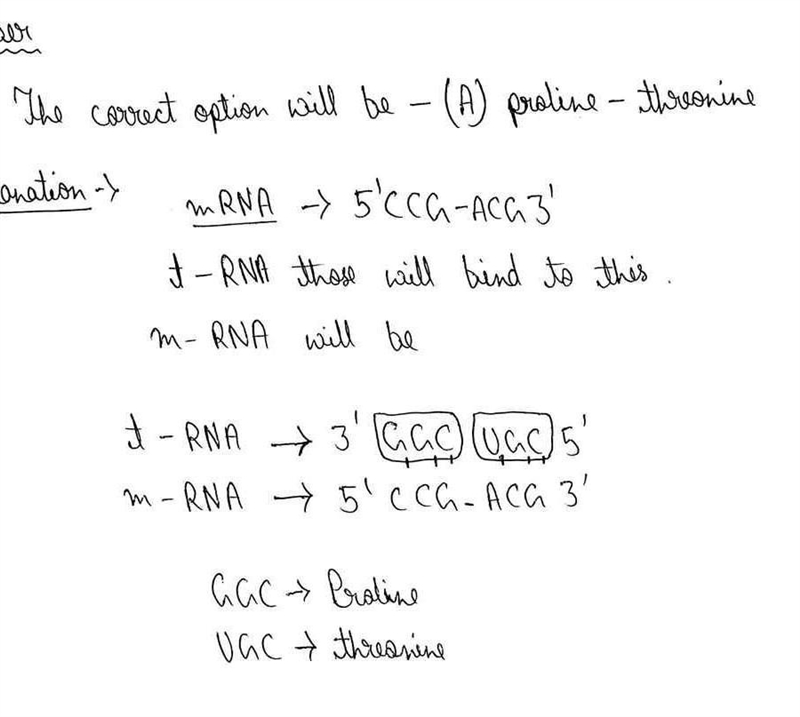 The correct option will be - (A) proline - threonine
mRNA -> 5'CCG-ACG3'
t-RNA those will bind to this.
m-RNA will be
t-RNA -> 3' GGC UGC 5'
m-RNA -> 5' CCG-ACG 3'
GGC -> Proline
UGC -> threonine